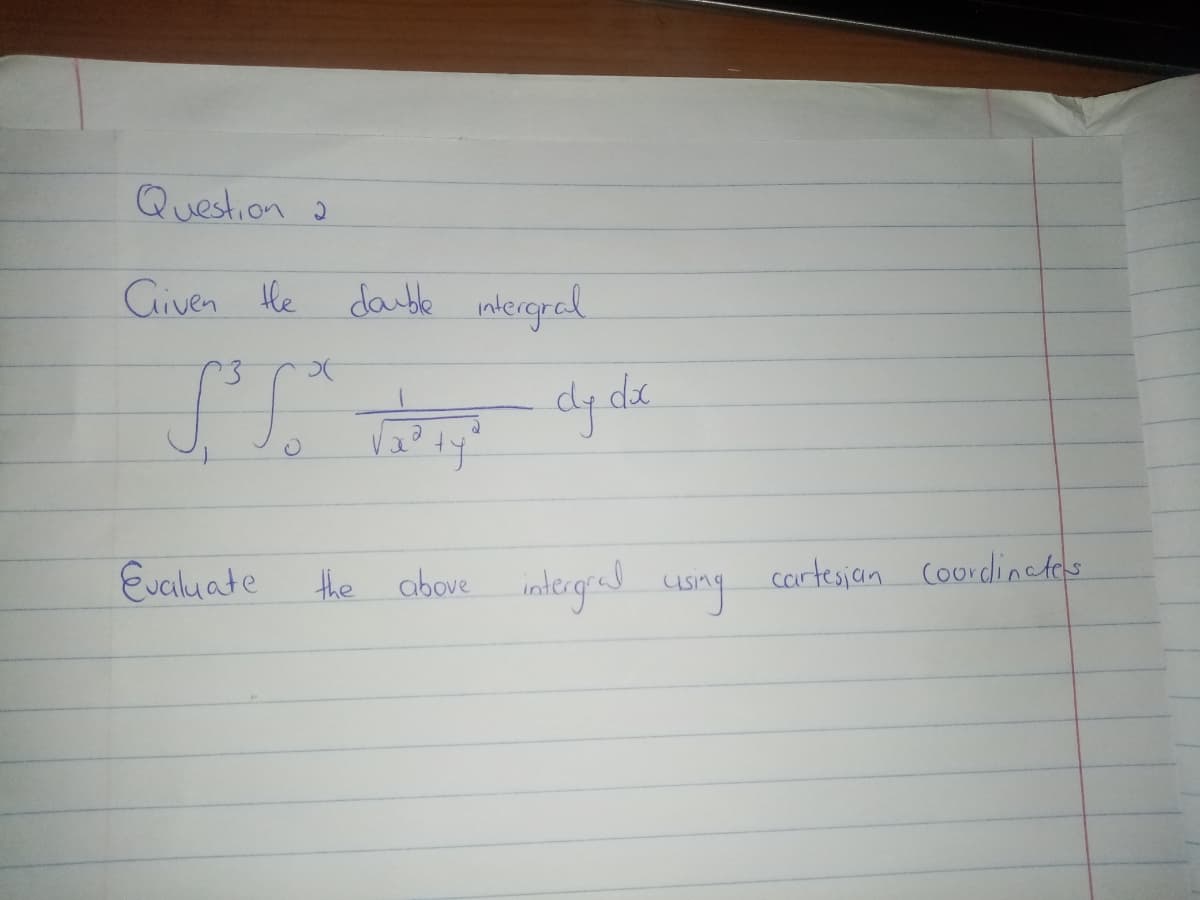 Question 2
Given the double intergral
∫₁³ ∫₀ˣ 1/√(x² + y²) dy dx
Evaluate the above intergral using cartesian coordinates